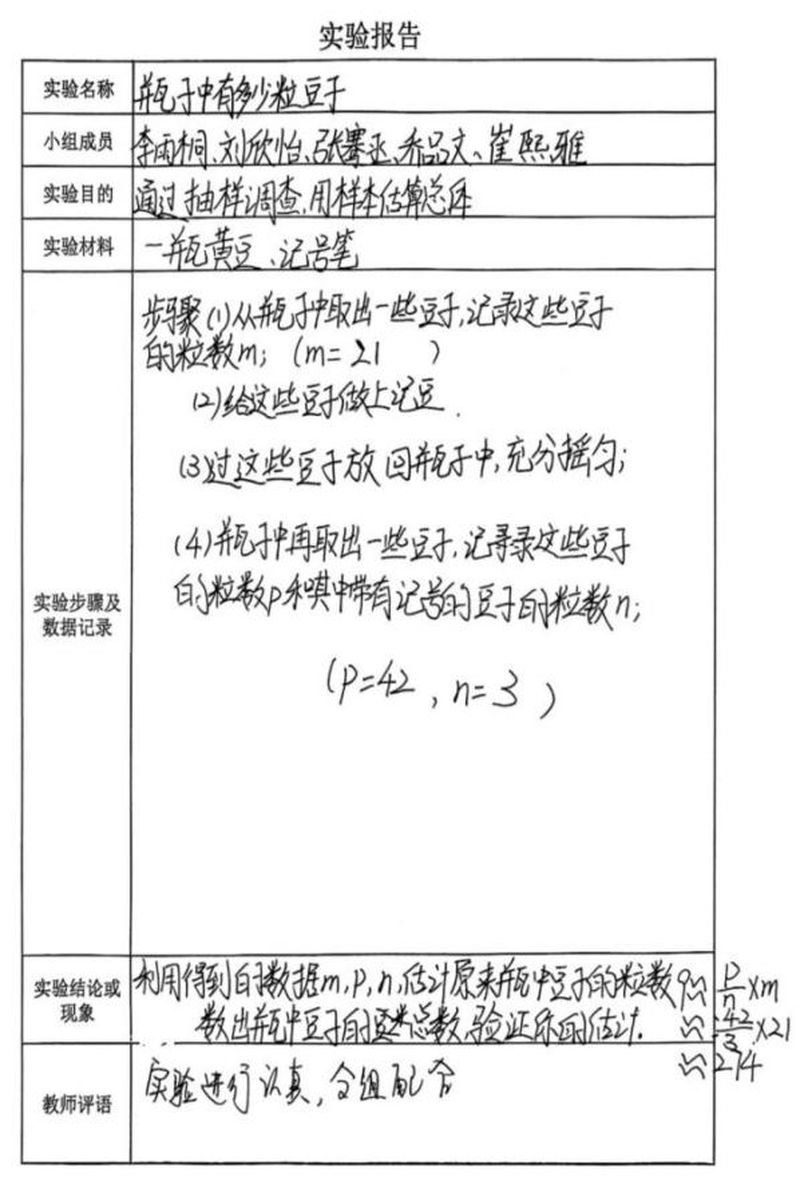 实验报告
实验名称 瓶子中有多少粒豆子
小组成员 李雨桐、刘欣怡、张骞丞、乔品文、崔熙雅
实验目的 通过抽样调查,用样本估算总体
实验材料 一瓶黄豆、记号笔
实验步骤及
数据记录
步骤(1)从瓶子中取出一些豆子,记录这些豆子
的粒数m; (m=21 )
(2)给这些豆子做上记豆.
(3)过这些豆子放回瓶子中,充分摇匀;
(4)瓶子中再取出一些豆子,记录这些豆子
的粒数p和其中带有记号的豆子的粒数n;
(P=42 , n=3 )
实验结论或
现象
利用得到的数据m,P,n,估计原来瓶中豆子的粒数 q≈ p/n ×m
数出瓶中豆子的总数,验证你的估计. ≈ 42/3 ×21
≈ 214
教师评语 实验进行认真,全组配合